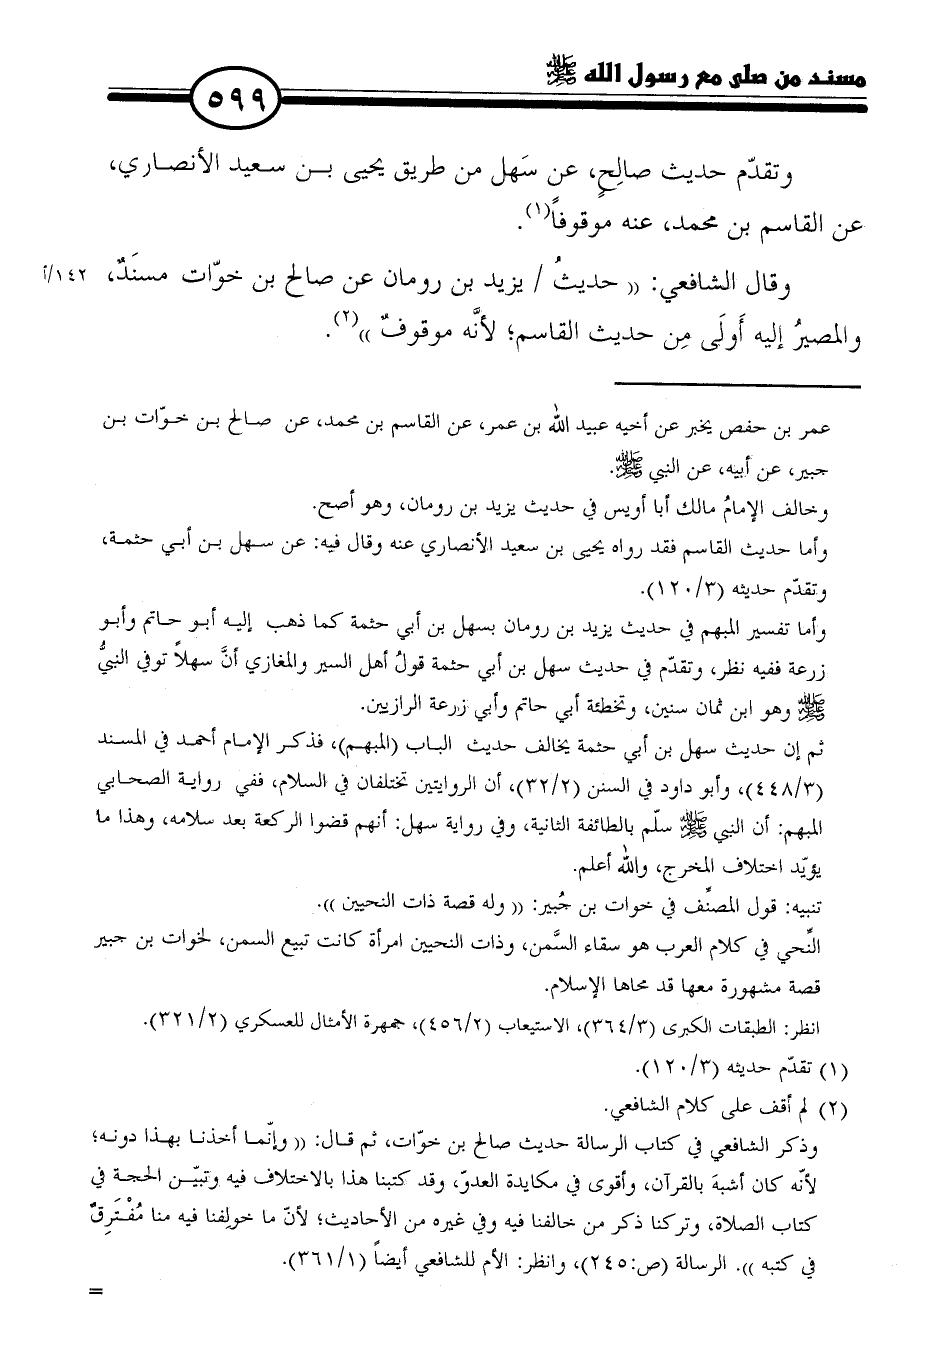 مسند من صلى مع رسول الله ﷺ
٥٩٩
وتقدّم حديث صالِحٍ، عن سَهل من طريق يحيى بـن سـعيد الأنصـاري،
عن القاسم بن محمد، عنه موقوفاً(١).
وقال الشافعي: (( حديثُ / يزيد بن رومان عن صالح بن خوّات مسنَدٌ، ١٤٢/أ
والمصيرُ إليه أَولَى مِن حديث القاسم؛ لأنَّه موقوفٌ ))(٢).
عمر بن حفص يخبر عن أخيه عبيد الله بن عمر، عن القاسم بن محمد، عن صالح بـن خـوّات بن
جبير، عن أبيه، عن النبي ﷺ.
وخالف الإمامُ مالك أبا أويس في حديث يزيد بن رومان، وهو أصح.
وأما حديث القاسم فقد رواه يحيى بن سعيد الأنصاري عنه وقال فيه: عن سـهل بـن أبـي حثمـة،
وتقدّم حديثه (١٢٠/٣).
وأما تفسير المبهم في حديث يزيد بن رومان بسهل بن أبي حثمة كما ذهب إليه أبـو حـاتم وأبـو
زرعة ففيه نظر، وتقدّم في حديث سهل بن أبي حثمة قولُ أهل السير والمغازي أنَّ سهلاً توفي النبيُّ
ﷺ وهو ابن ثمان سنين، وتخطئة أبي حاتم وأبي زرعة الرازيين.
ثم إن حديث سهل بن أبي حثمة يخالف حديث الباب (المبهم)، فذكـر الإمـام أحمـد في المسند
(٤٤٨/٣)، وأبو داود في السنن (٣٢/٢)، أن الروايتين تختلفان في السلام، ففي روايـة الصحابي
المبهم: أن النبي ﷺ سلّم بالطائفة الثانية، وفي رواية سهل: أنهم قضوا الركعة بعد سلامه، وهذا ما
يؤيّد اختلاف المخرج، والله أعلم.
تنبيه: قول المصنِّف في خوات بن جُبير: (( وله قصة ذات النحيين )).
النِّحي في كلام العرب هو سقاء السَّمن، وذات النحيين امرأة كانت تبيع السمن، لخوات بن جبير
قصة مشهورة معها قد محاها الإسلام.
انظر: الطبقات الكبرى (٣٦٤/٣)، الاستيعاب (٤٥٦/٢)، جمهرة الأمثال للعسكري (٣٢١/٢).
(١) تقدّم حديثه (١٢٠/٣).
(٢) لم أقف على كلام الشافعي.
وذكر الشافعي في كتاب الرسالة حديث صالح بن خوّات، ثم قـال: (( وإنّمـا أخذنـا بهـذا دونـه؛
لأنّه كان أشبهَ بالقرآن، وأقوى في مكايدة العدوّ، وقد كتبنا هذا بالاختلاف فيه وتبيّـن الحجـة في
كتاب الصلاة، وتركنا ذكر من خالفنا فيه وفي غيره من الأحاديث؛ لأنّ ما خولِفنا فيه منا مُفْتَرِقٌ
في كتبه )). الرسالة (ص:٢٤٥)، وانظر: الأم للشافعي أيضاً (٣٦١/١).
=